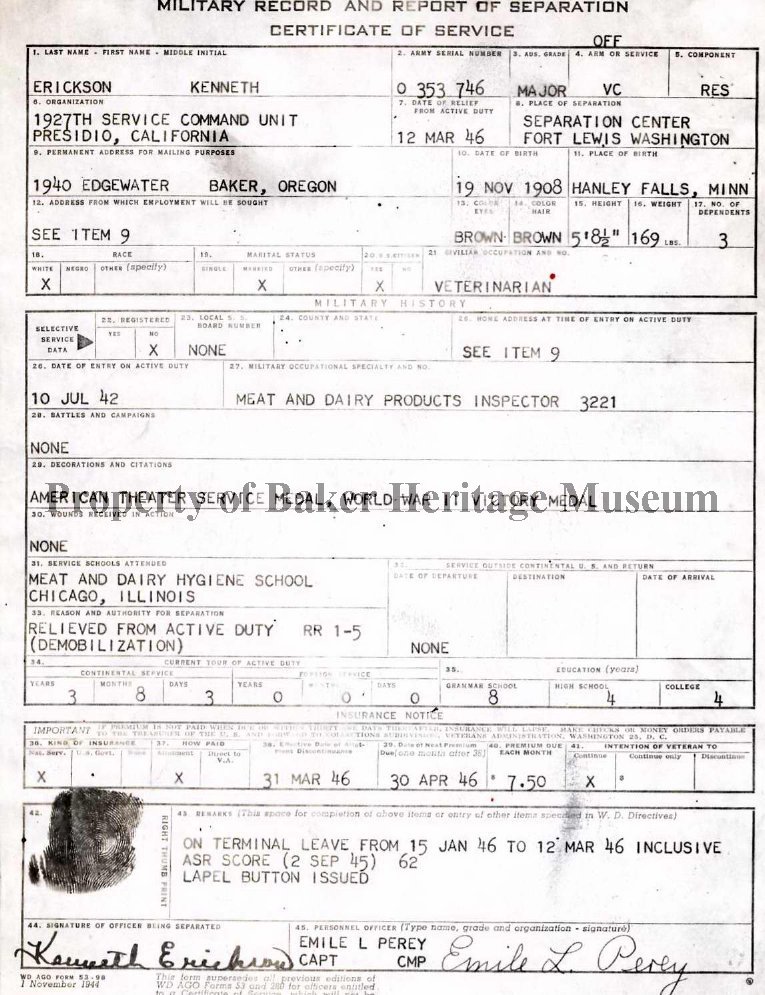 MILITARY RECORD AND REPORT OF SEPARATION
CERTIFICATE OF SERVICE
OFF
1. LAST NAME - FIRST NAME - MIDDLE INITIAL
2. ARMY SERIAL NUMBER
3. AUS. GRADE
4. ARM OR SERVICE
5. COMPONENT
ERICKSON KENNETH
O 353 746
MAJOR
VC
RES
6. ORGANIZATION
7. DATE OF RELIEF FROM ACTIVE DUTY
8. PLACE OF SEPARATION
1927TH SERVICE COMMAND UNIT
PRESIDIO, CALIFORNIA
12 MAR 46
SEPARATION CENTER
FORT LEWIS WASHINGTON
9. PERMANENT ADDRESS FOR MAILING PURPOSES
10. DATE OF BIRTH
11. PLACE OF BIRTH
1940 EDGEWATER BAKER, OREGON
19 NOV 1908
HANLEY FALLS, MINN
12. ADDRESS FROM WHICH EMPLOYMENT WILL BE SOUGHT
13. COLOR EYES
14. COLOR HAIR
15. HEIGHT
16. WEIGHT
17. NO. OF DEPENDENTS
SEE ITEM 9
BROWN
BROWN
5'8½"
169 LBS.
3
18. RACE
19. MARITAL STATUS
20 U.S. CITIZEN
21 CIVILIAN OCCUPATION AND NO.
WHITE NEGRO OTHER (specify)
SINGLE MARRIED OTHER (specify)
YES NO
X
X
X
VETERINARIAN
MILITARY HISTORY
SELECTIVE SERVICE DATA
22. REGISTERED
YES NO
23. LOCAL S. S. BOARD NUMBER
24. COUNTY AND STATE
25. HOME ADDRESS AT TIME OF ENTRY ON ACTIVE DUTY
X
NONE
SEE ITEM 9
26. DATE OF ENTRY ON ACTIVE DUTY
27. MILITARY OCCUPATIONAL SPECIALTY AND NO.
10 JUL 42
MEAT AND DAIRY PRODUCTS INSPECTOR 3221
28. BATTLES AND CAMPAIGNS
NONE
29. DECORATIONS AND CITATIONS
AMERICAN THEATER SERVICE MEDAL, WORLD WAR II VICTORY MEDAL
Property of Baker Heritage Museum
30. WOUNDS RECEIVED IN ACTION
NONE
31. SERVICE SCHOOLS ATTENDED
32. SERVICE OUTSIDE CONTINENTAL U. S. AND RETURN
DATE OF DEPARTURE
DESTINATION
DATE OF ARRIVAL
MEAT AND DAIRY HYGIENE SCHOOL
CHICAGO, ILLINOIS
33. REASON AND AUTHORITY FOR SEPARATION
RELIEVED FROM ACTIVE DUTY RR 1-5
(DEMOBILIZATION)
NONE
34. CURRENT TOUR OF ACTIVE DUTY
35. EDUCATION (years)
CONTINENTAL SERVICE
FOREIGN SERVICE
YEARS MONTHS DAYS YEARS MONTHS DAYS
GRAMMAR SCHOOL HIGH SCHOOL COLLEGE
3 8 3 0 0 0 8 4 4
INSURANCE NOTICE
IMPORTANT IF PREMIUM IS NOT PAID WHEN DUE OR WITHIN THIRTY-ONE DAYS THEREAFTER, INSURANCE WILL LAPSE. MAKE CHECKS OR MONEY ORDERS PAYABLE
TO THE TREASURER OF THE U. S. AND FORWARD TO COLLECTIONS SUBDIVISION, VETERANS ADMINISTRATION, WASHINGTON 25, D. C.
36. KIND OF INSURANCE
37. HOW PAID
38. Effective Date of Allotment Discontinuance
39. Date of Next Premium Due (one month after 38)
40. PREMIUM DUE EACH MONTH
41. INTENTION OF VETERAN TO
Nat. Serv. U.S. Govt. None
Allotment Direct to V.A.
Continue Continue only Discontinue
X
X
31 MAR 46
30 APR 46
$ 7.50
X
$
42.
RIGHT THUMB PRINT
43. REMARKS (This space for completion of above items or entry of other items specified in W. D. Directives)
ON TERMINAL LEAVE FROM 15 JAN 46 TO 12 MAR 46 INCLUSIVE
ASR SCORE (2 SEP 45) 62
LAPEL BUTTON ISSUED
44. SIGNATURE OF OFFICER BEING SEPARATED
45. PERSONNEL OFFICER (Type name, grade and organization - signature)
Kenneth Erickson
EMILE L PEREY
CAPT CMP
Emile L. Perey
WD AGO FORM 53-98
1 November 1944
This form supersedes all previous editions of
WD AGO Forms 53 and 280 for officers entitled
to a Certificate of Service, which will not be